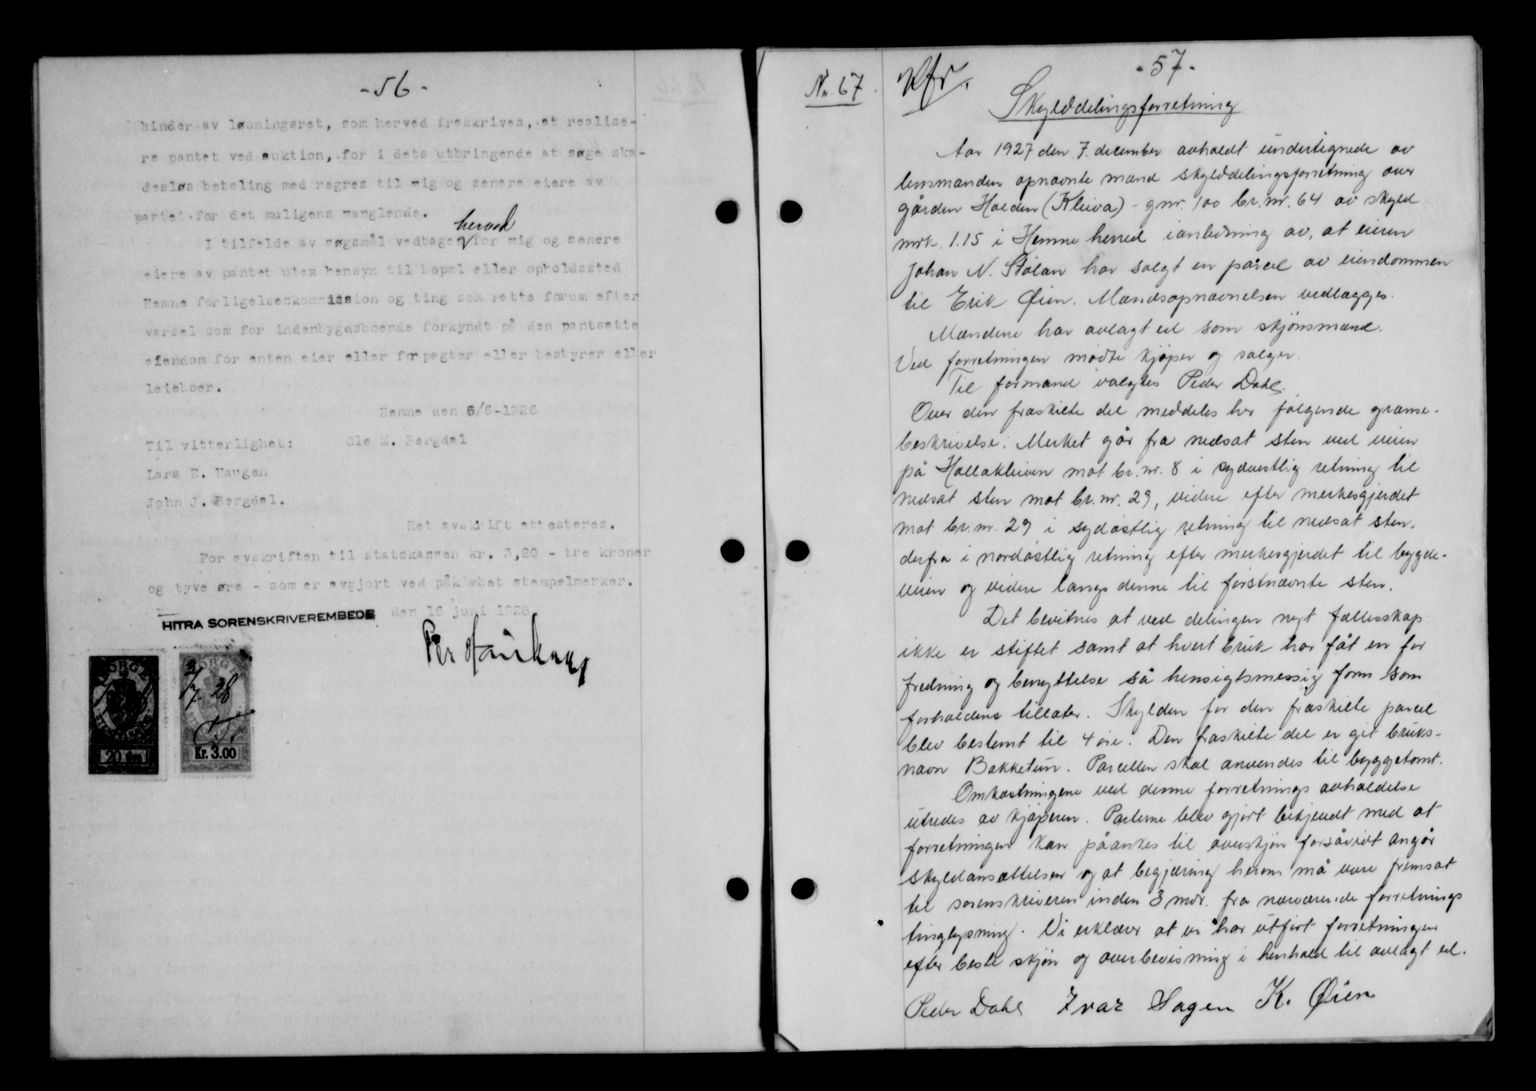 - 56 -
hinder av løsningsret, som herved fraskrives, at realise-
re pantet ved auktion, for i dets utbringende at søge ska-
desløs betaling med regres til mig og senere eiere av
pantet for det muligens manglende.
herved
I tilfelde av søgsmål vedtages for mig og senere
eiere av pantet uten hensyn til bopæl eller opholdssted
Hemne forligelseskommission og ting som rette forum efter
varsel som for indenbygdsboende forkyndt på den pantsatte
eiendom for enten eier eller forpagter eller bestyrer eller
leieboer.
Hemne den 6/6-1928
Til vitterlighet: Ole M. Bergdal
Lars E. Haugen
John J. Bergdal.
Ret avskrift attesteres.
For avskriften til statskassen kr. 3,20 - tre kroner
og tyve øre - som er avgjort ved påklæbet stempelmerker.
HITRA SORENSKRIVEREMBEDE den 16 juni 1928
NORGE
20 øre
NORGE
2/7 28
Kr. 3.00
- 57 -
Nr. 67
Skylddelingsforretning
Aar 1927 den 7. december avholdt undertegnede av
lensmanden opnævnte mænd skylddelingsforretning over
gården Halden (Kleiva) - gnr. 100 br.nr. 64 av skyld
mrk. 1.15 i Hemne herred i anledning av, at eieren
Johan N. Stølan har solgt en parcel av eiendommen
til Erik Øien. Mændsopnævnelsen vedlægges.
Mændene har avlagt ed som skjønsmænd.
Ved forretningen mødte kjøper og sælger.
Til formand valgtes Peder Dahl.
Over den fraskilte del meddeles her følgende grænse-
beskrivelse: Merket går fra nedsat sten ved veien
på Hollakleiven mot br.nr. 8 i sydvestlig retning til
nedsat sten mot br.nr. 29, videre efter merkesgjerdet
mot br.nr. 29 i sydøstlig retning til nedsat sten,
derfra i nordøstlig retning efter merkesgjerdet til bygde-
veien og videre langs denne til førstnævnte sten.
Det bevitnes at ved delingen nyt fællesskap
ikke er stiftet samt at hvert bruk har fåt en for
fredning og benyttelse så hensigtsmessig form som
forholdene tillater. Skylden for den fraskilte parcel
blev bestemt til 4 øre. Den fraskilte del er git bruks-
navn Bakketun. Parcellen skal anvendes til byggetomt.
Omkostningene ved denne forretnings avholdelse
utredes av kjøperen. Parterne blev gjort bekjendt med at
forretningen kan påankes til overskjøn forsåvidt angår
skyldansættelsen og at begjæring herom må være fremsat
til sorenskriveren inden 3 mdr. fra nærværende forretnings
tinglysning. Vi erklærer at vi har utført forretningen
efter beste skjøn og overbevisning i henhold til avlagt ed.
Peder Dahl Ivar Sagen K. Øien